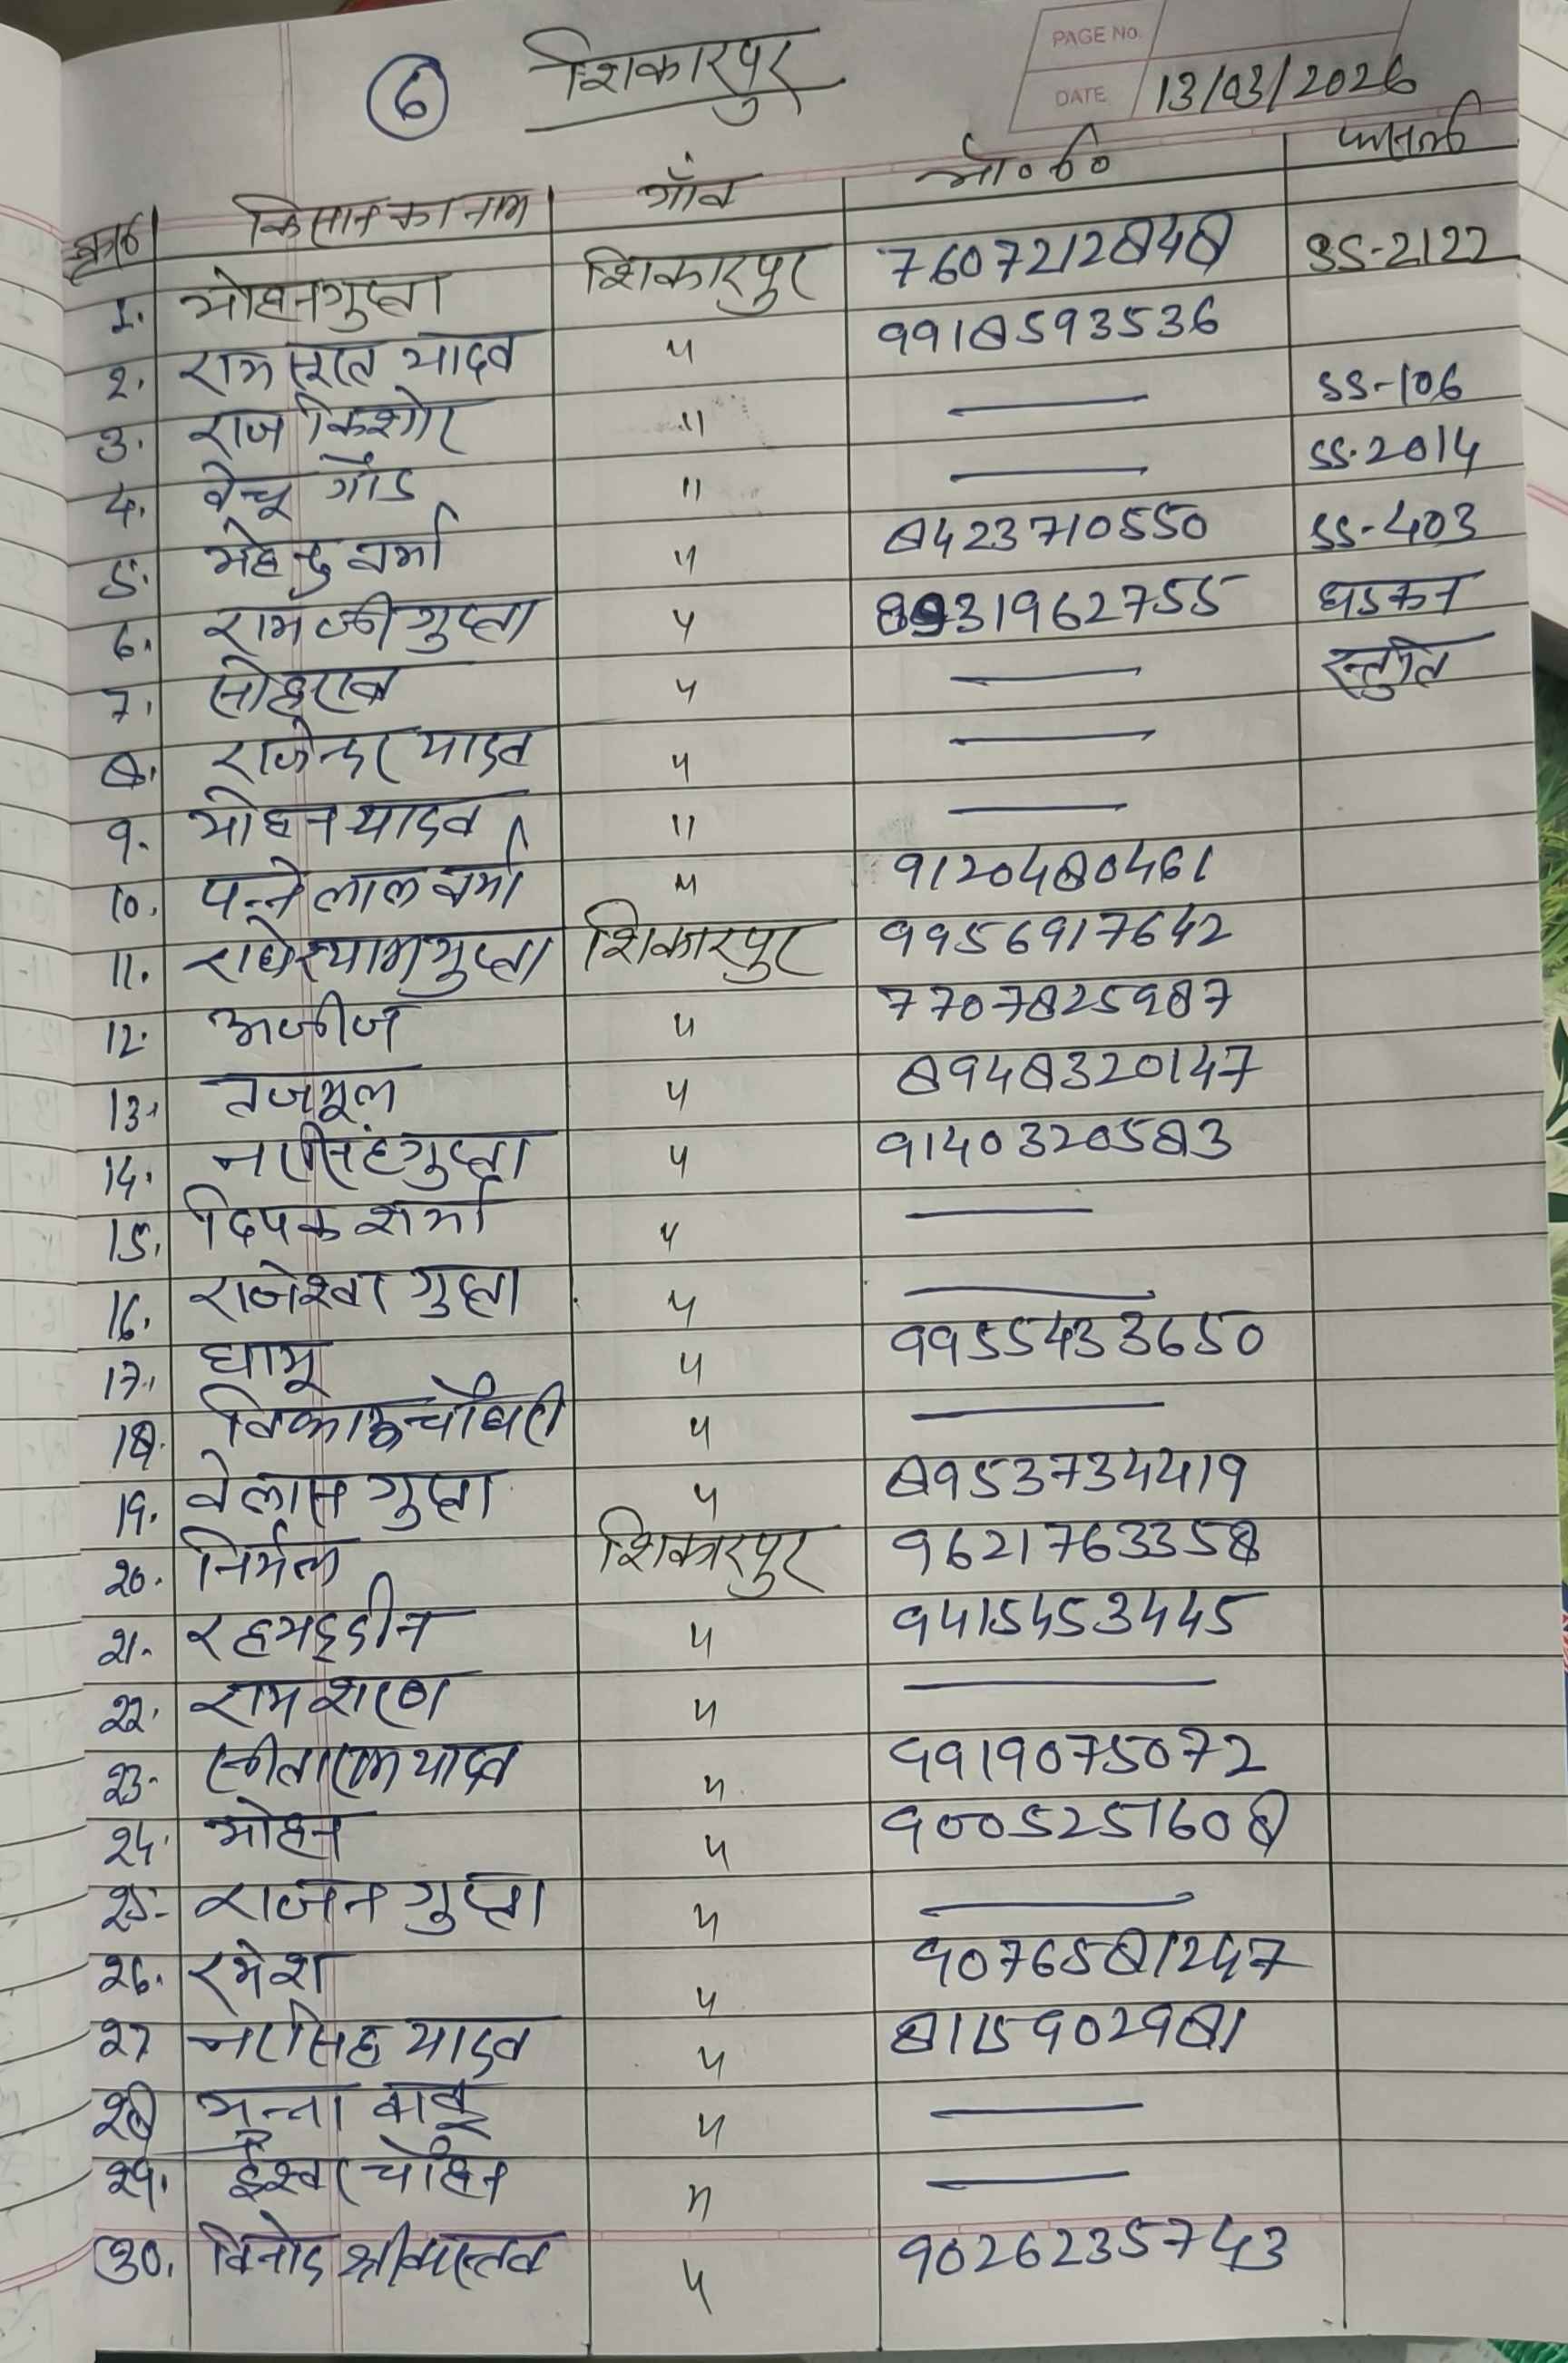 6 शिकारपुर
PAGE No.
DATE 13/03/2026
क्र०सं० किसान का नाम गाँव मो० नं० फसल
1. मोहन गुप्ता शिकारपुर 7607212848 SS-2122
2. राम सूरत यादव " 9918593536
3. राज किशोर " — SS-106
4. वेचू गोंड " — SS-2014
5. महेन्द्र वर्मा " 8423710550 SS-403
6. रामजी गुप्ता " 8931962755 धडकन
7. सोहराब " —
8. राजेन्दर यादव " —
9. मोहन यादव " —
10. पन्ने लाल वर्मा " 9120480461
11. राधेश्याम गुप्ता शिकारपुर 9956917642
12. अजीज " 7707825987
13. तजमूल " 8948320147
14. नरसिंह गुप्ता " 9140320583
15. दिपक शर्मा " —
16. राजेश्वर गुप्ता " —
17. घामू " 9955433650
18. चौधरी " —
19. वेलास गुप्ता " 8953734419
20. निर्मल शिकारपुर 9621763358
21. रहमद्दीन " 9415453445
22. राम शरण " —
23. सीताराम यादव " 9919075072
24. मोहन " 9005251608
25. राजन गुप्ता " —
26. रमेश " 9076581247
27 नरसिंह यादव " 8115902981
28 मुन्ना बाबू " —
29. ईश्वर चौहान " —
30. विनोद श्रीवास्तव " 9026235743